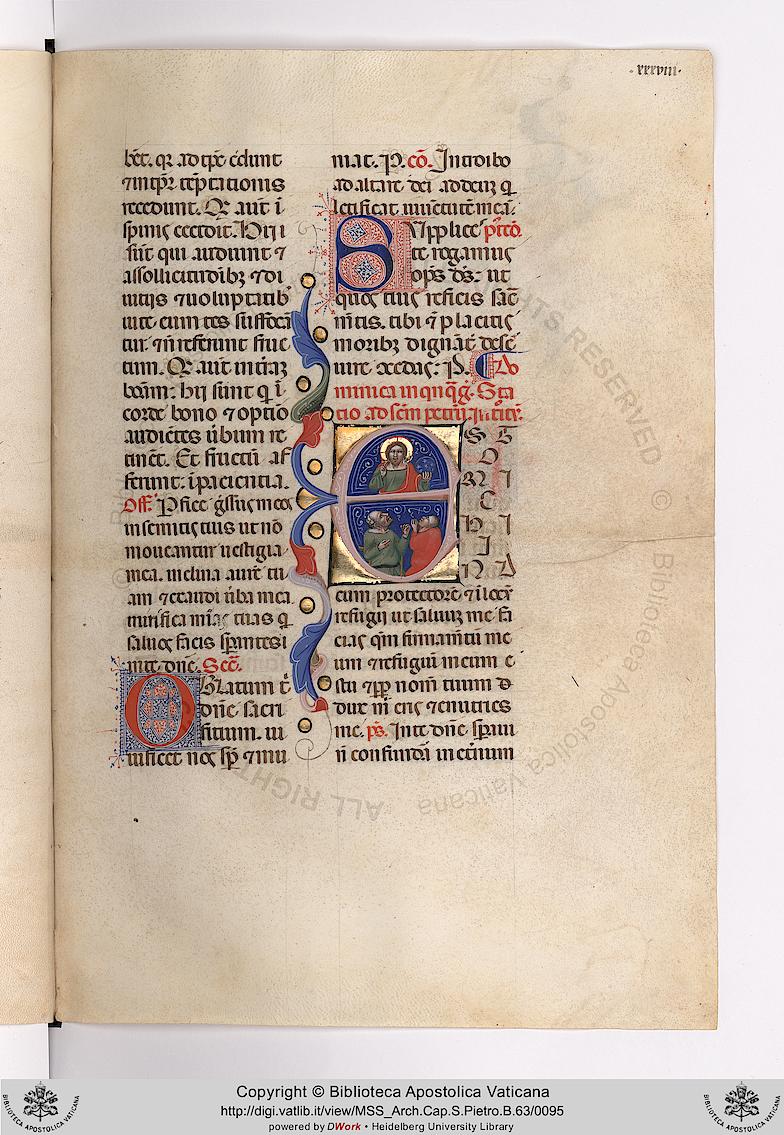 ·xxxviii·
bēt. qr ad tp̄e c̄dunt
⁊ in tp̄r tēptationis
recedunt. Qr aut̄ ī
spinis cecidit. Hii
sūt qui audiunt ⁊
a ssollicitudībꝫ ⁊ di
uitiis ⁊ uoluptatib᾽
uite eun tes suffocā
tur. ⁊ n̄ referunt fruc
tum. Qr aut̄ in trāz
bonā: hii sunt q̄ ī
corde bono ⁊ optīo
audiētes ūbum re
tinēt. Et fructū af
ferunt. ī paciencia.
Off. P̄fice ḡssus meos
in semitis tuis ut nō
moueantur uestigia
mea. inclina aurē tu
am ⁊ exaudi ūba mea
mirifica mīas tuas q̄
saluos facis sp̄antes ī
in te dn̄e. Scā.
OBlatum t̄
dn̄e sacri
ficium. ui
uificet nos sp̄ ⁊ mu
niat. P. cō. Introibo
ad altare dei ad deuz q̄
letificat iuuētutē meā.
SVpplices p̄tcō.
te rogamus
op̄s ds̄. ut
quos tuis reficis sac̄
m̄tis. tibi ⁊ placitis
moribꝫ dignāt̄ dese
uire cōcedas: P. Do
minica in qnq̄g. Sta
tio ad scm̄ petrū. Introit᾽.
ESTO MICHI IN D
eum protectorē ⁊ ī locū
refugii ut saluuz me fa
cias qm̄ firmam̄tū me
um ⁊ refugiū meum e
s tu ⁊ pp̄ nom̄ tuum d
dux m̄ eris ⁊ enutries
me. ps. In te dn̄e sp̄aui
n̄ confundā in et̄num
© Biblioteca Apostolica Vaticana
ALL RIGHTS RESERVED
Copyright © Biblioteca Apostolica Vaticana
http://digi.vatlib.it/view/MSS_Arch.Cap.S.Pietro.B.63/0095
powered by DWork • Heidelberg University Library
BIBLIOTECA APOSTOLICA VATICANA
BIBLIOTECA APOSTOLICA VATICANA